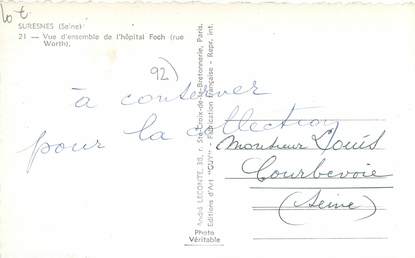 lot
SURESNES (Seine)
21 — Vue d'ensemble de l'hôpital Foch (rue
Worth).
92)
à conserver
pour la collection
André LECONTE, 38, r. Ste-Croix-de-la-Bretonnerie, Paris.
Editions d'Art "GUY" - Fabrication Française - Repr. int.
Monsieur Louis
Courbevoie
(Seine)
Photo
Véritable